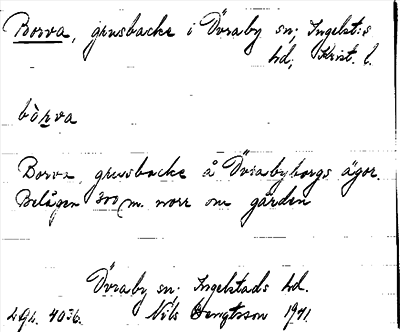 Borva, grusbacke i Övraby sn; Ingelst:s
hd; Krist. l.
bòrva
Borva, grusbacke å Övrabyborgs ägor.
Belägen 300 m. norr om gården
Övraby sn. Ingelstads hd.
L.g.h. 4036. Nils Bengtsson 1941.